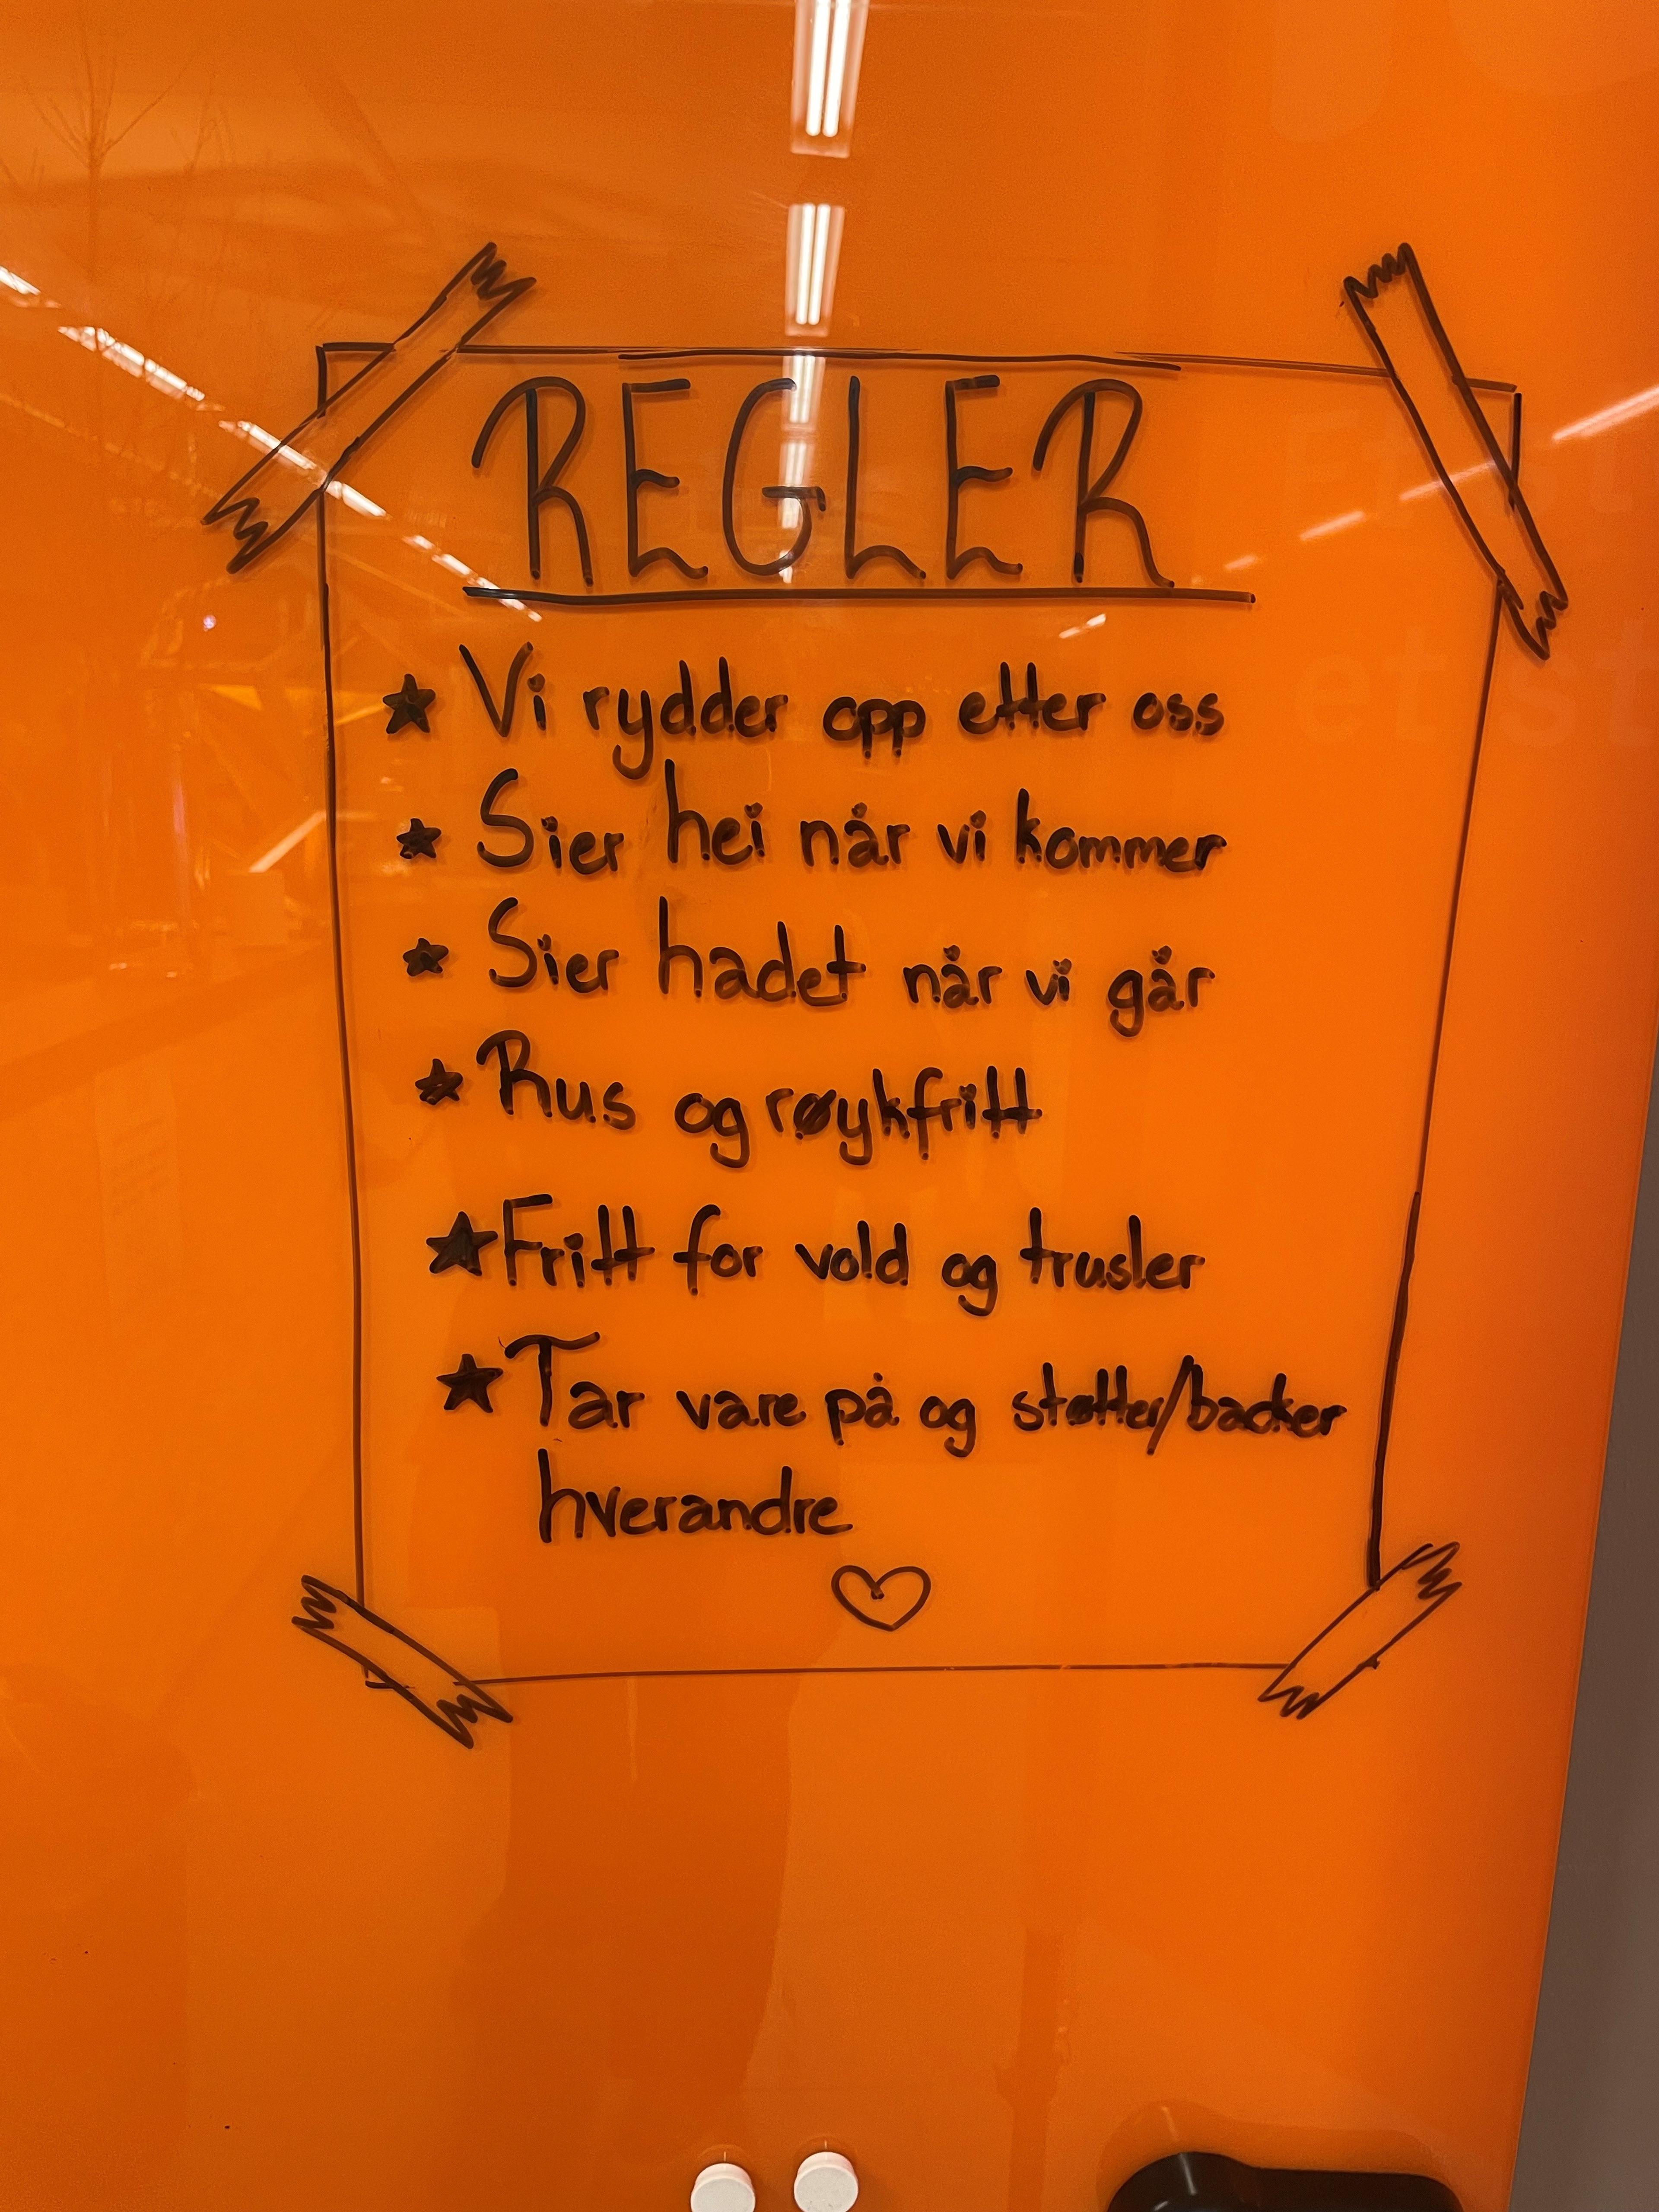 REGLER
★ Vi rydder opp etter oss
★ Sier hei når vi kommer
★ Sier hadet når vi går
★ Rus og røykfritt
★ Fritt for vold og trusler
★ Tar vare på og støtter/backer
hverandre